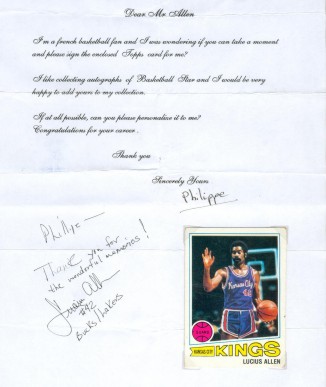 Dear Mr Allen
I'm a french basketball fan and I was wondering if you can take a moment
and please sign the enclosed Topps card for me?
I like collecting autographs of Basketball Star and I would be very
happy to add yours to my collection.
If at all possible, can you please personalize it to me?
Congratulations for your career.
Thank you
Sincerely Yours
Philippe
Phillipe—
Thank you for
the wonderful memories!
#42
Bucks/Lakers
Kansas City
KANSAS CITY
KINGS
LUCIUS ALLEN